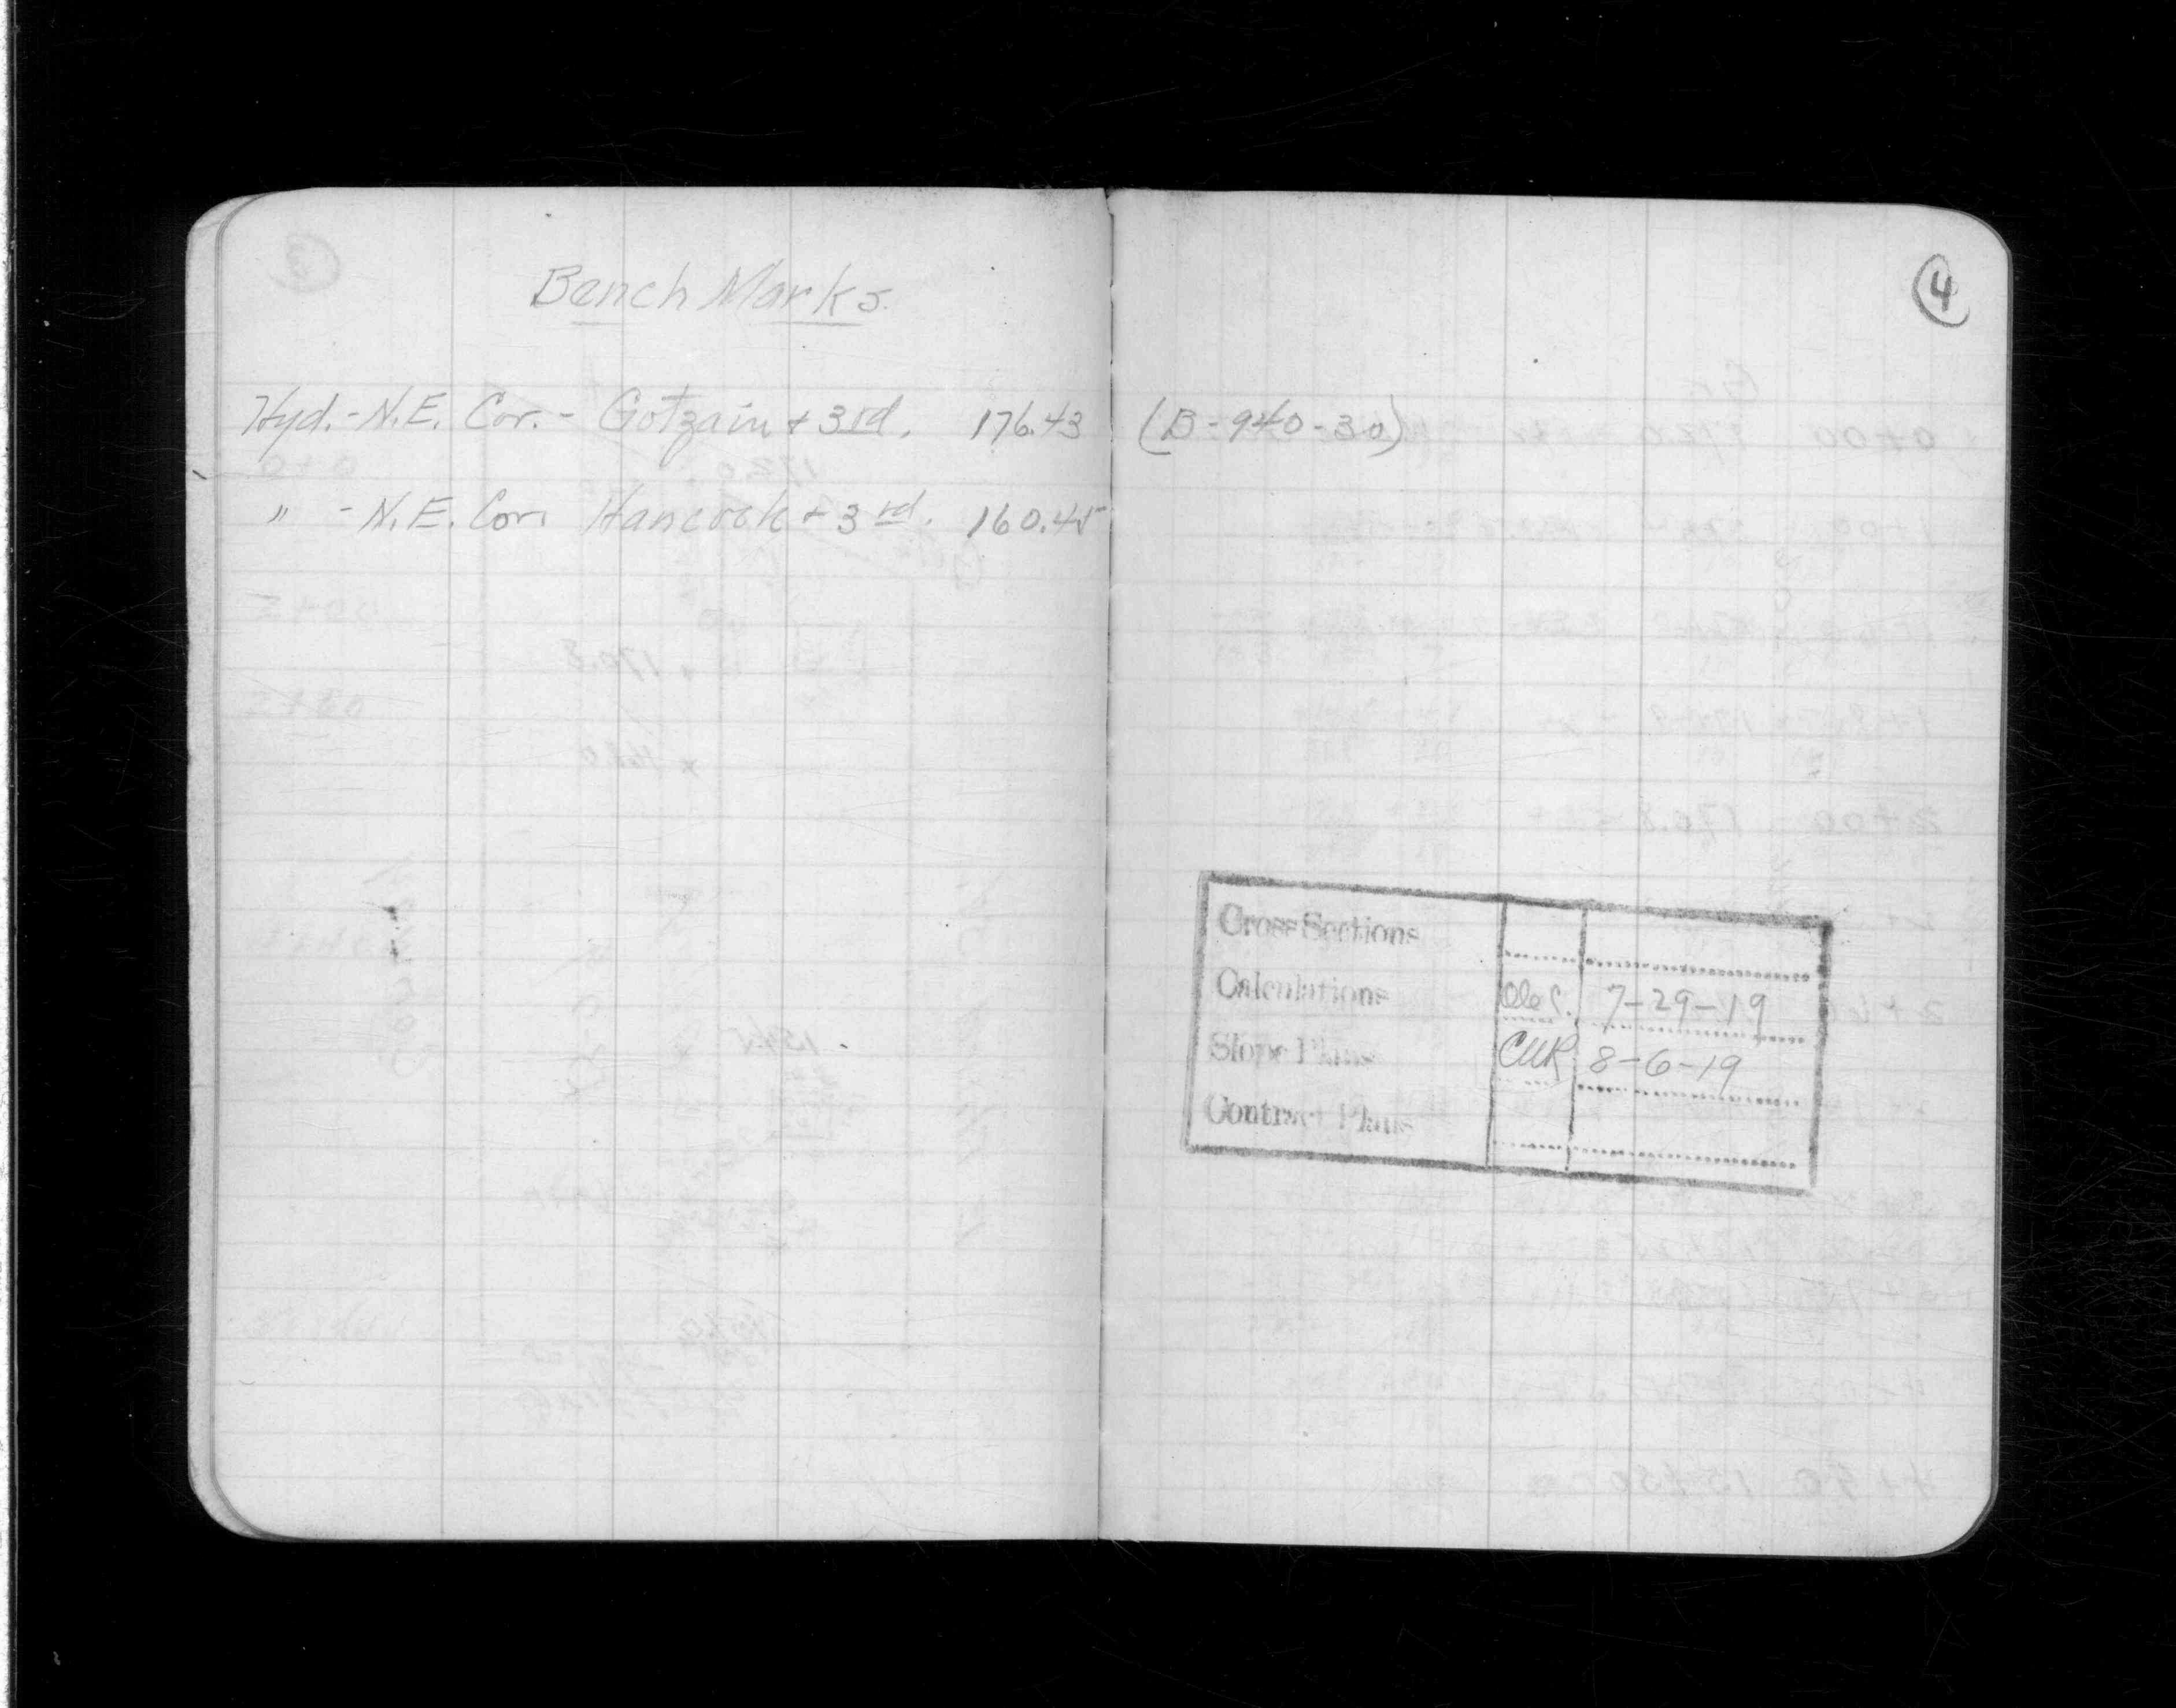 Bench Marks.
Hyd. - N.E. Cor. - Gotzain + 3rd. 176.43 (B-940-30)
" - N.E. Cor. Hancock + 3rd. 160.45
4
Cross Sections
Calculations 7-29-19
Slope Plans CUR 8-6-19
Contract Plans